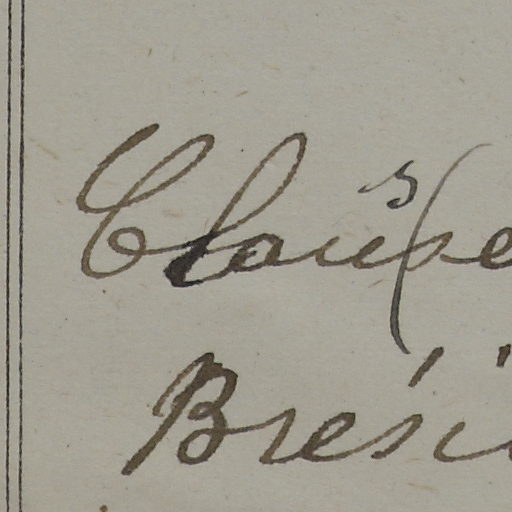 Clause
Brési